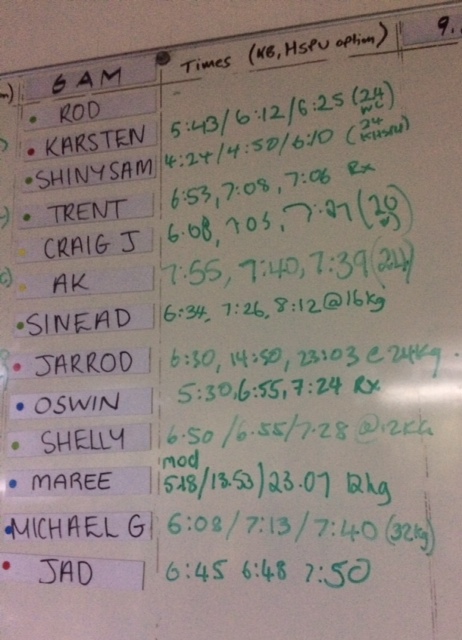 6 AM Times (KB, HSPU option) 9.
ROD -
KARSTEN 5:43/6:12/6:25 (24
SHINYSAM 4:24/4:50/6:10 (24
TRENT 6:53, 7:08, 7:06 Rx
CRAIG J 6:08, 7:03, 7:27 (20
AK 7:55, 7:40, 7:39 (24)
SINEAD 6:34, 7:26, 8:12 @16kg
JARROD 6:30, 14:50, 23:03 @ 24kg
OSWIN 5:30, 6:55, 7:24 Rx
SHELLY 6:50 /6:55/7:28 @12kg
mod
MAREE 5:18/13:53/23:07 12kg
MICHAEL G 6:08/7:13/7:40 (32kg)
JAD 6:45 6:48 7:50